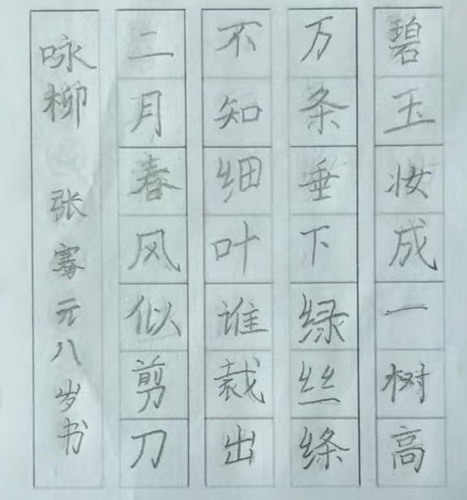 碧玉妆成一树高
万条垂下绿丝绦
不知细叶谁裁出
二月春风似剪刀
咏柳 张骞元八岁书